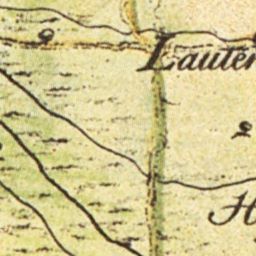 Lauter
H